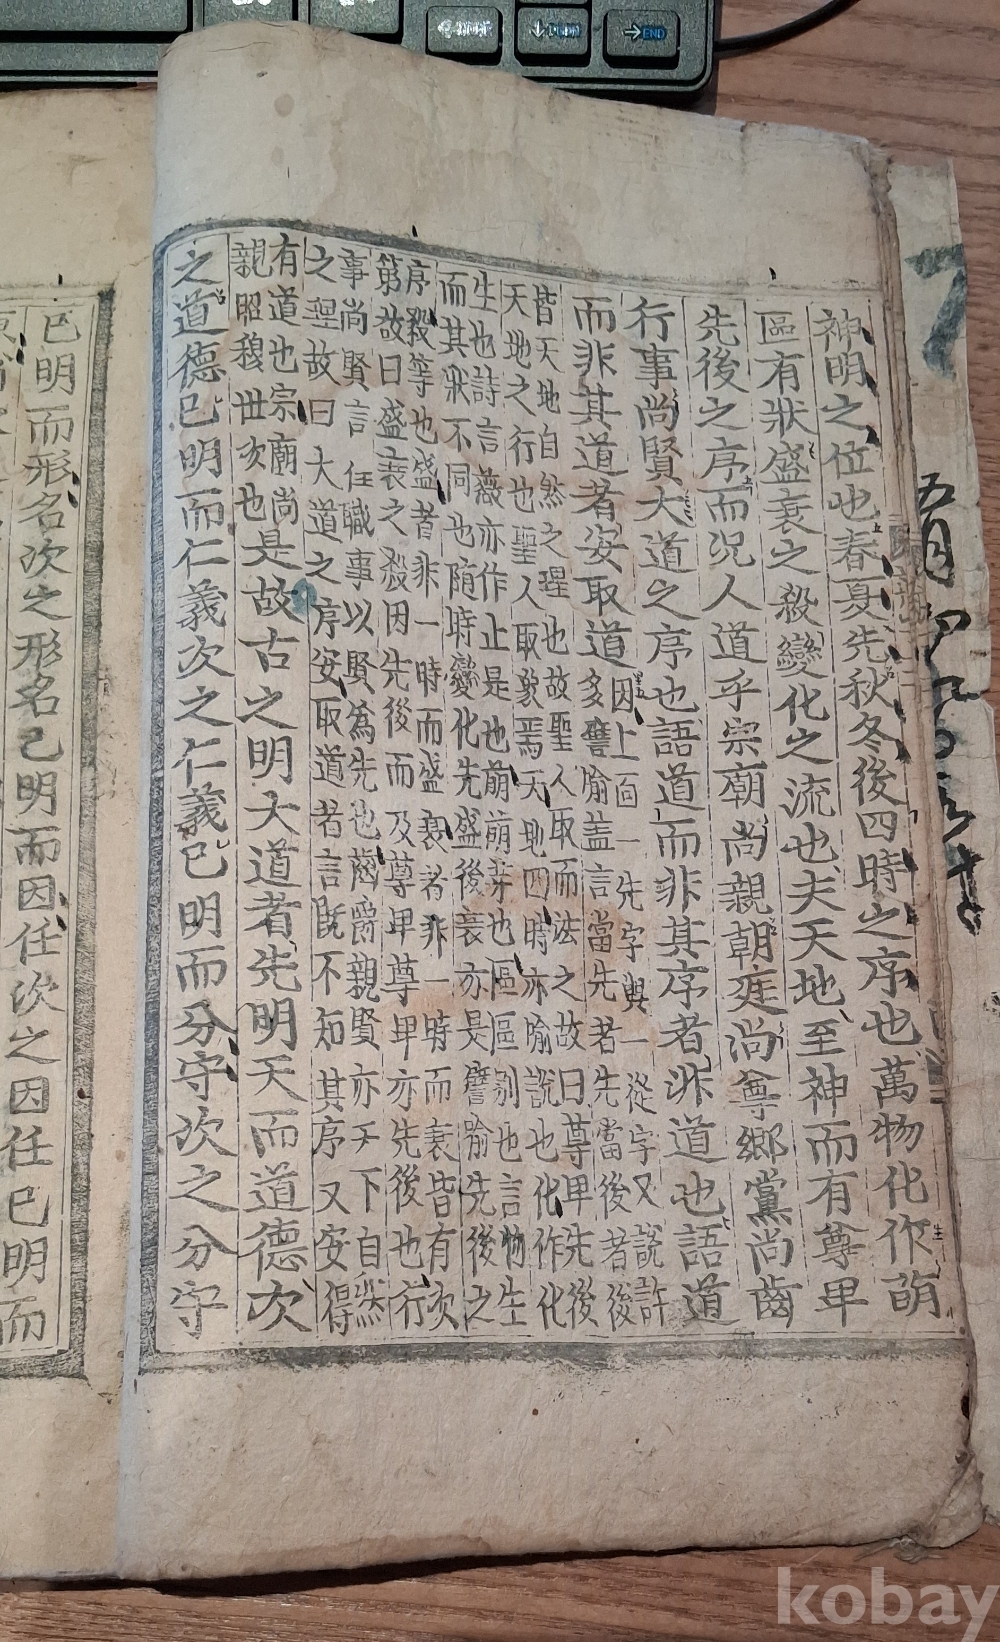 神明之位也春夏先秋冬後四時之序也萬物化作萌
區有狀盛衰之殺變化之流也夫天地至神而有尊卑
先後之序而况人道乎宗廟尚親朝廷尚尊鄉黨尚齒
行事尚賢大道之序也語道而非其序者非道也語道
而非其道者安取道
因上面一先字與一從字又說許
多譬喻盖言當先者先當後者後
皆天地自然之理也故聖人取而法之故曰尊卑先後
天地之行也聖人取象焉天地四時亦喻說也化作化
生也詩言薇亦作止是也萌萌芽也區區别也言物生
而其狀不同也随時變化先盛後衰亦是譬喻先後之
序殺等也盛者非一時而盛衰者非一時而衰皆有次
第故曰盛衰之殺因先後而及尊卑尊卑亦先後也行
事尚賢言任職事以賢爲先也齒爵親賢亦天下自然
之理故曰大道之序安取道者言既不知其序又安得
有道也宗廟尚
親昭穆世次也
是故古之明大道者先明天而道德次
之道德已明而仁義次之仁義已明而分守次之分守
已明而形名次之形名已明而因任次之因任已明而
五
END
kobay